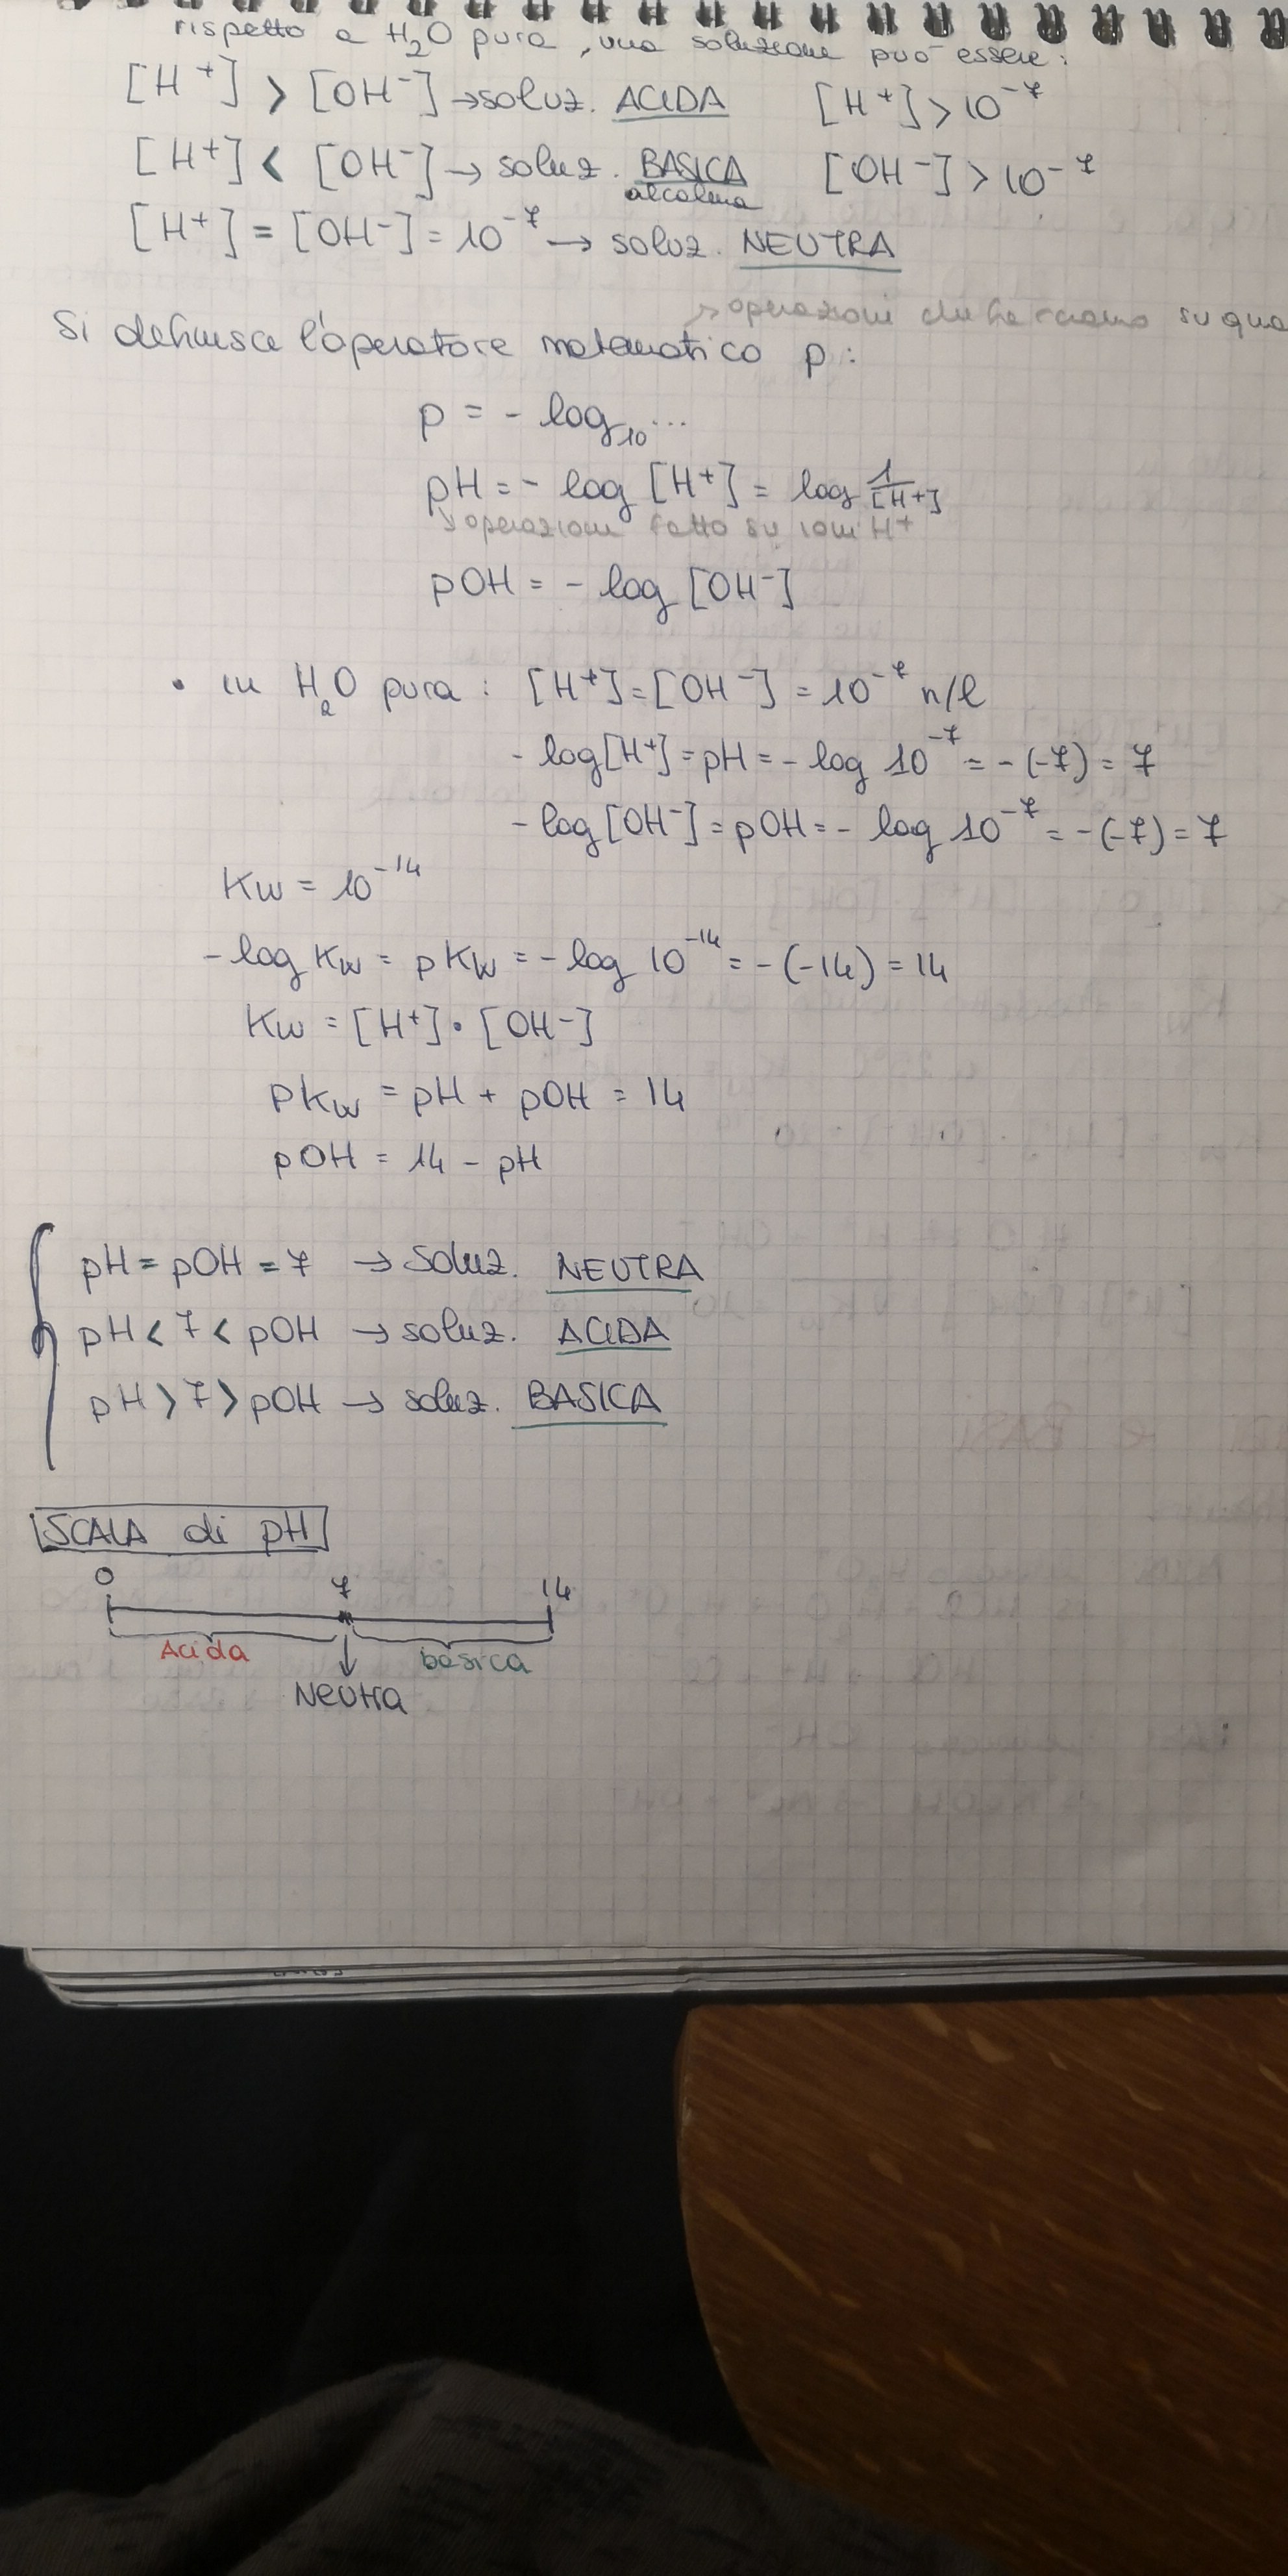 rispetto a H₂O pura, una soluzione può essere:
[H⁺] > [OH⁻] → soluz. ACIDA [H⁺] > 10⁻⁷
[H⁺] < [OH⁻] → soluz. BASICA [OH⁻] > 10⁻⁷
alcalina
[H⁺] = [OH⁻] = 10⁻⁷ → soluz. NEUTRA
↳ operazioni che facciamo su
Si definisce l'operatore matematico p:
p = - log₁₀ ...
pH = - log [H⁺] = log 1/[H⁺]
↳ operazione fatto su ioni H⁺
pOH = - log [OH⁻]
• in H₂O pura: [H⁺] = [OH⁻] = 10⁻⁷ n/l
- log [H⁺] = pH = - log 10⁻⁷ = - (-7) = 7
- log [OH⁻] = pOH = - log 10⁻⁷ = - (-7) = 7
Kw = 10⁻¹⁴
- log Kw = pKw = - log 10⁻¹⁴ = - (-14) = 14
Kw = [H⁺] • [OH⁻]
pKw = pH + pOH = 14
pOH = 14 - pH
pH = pOH = 7 → soluz. NEUTRA
pH < 7 < pOH → soluz. ACIDA
pH > 7 > pOH → soluz. BASICA
SCALA di pH
0 7 14
Acida basica
Neutra